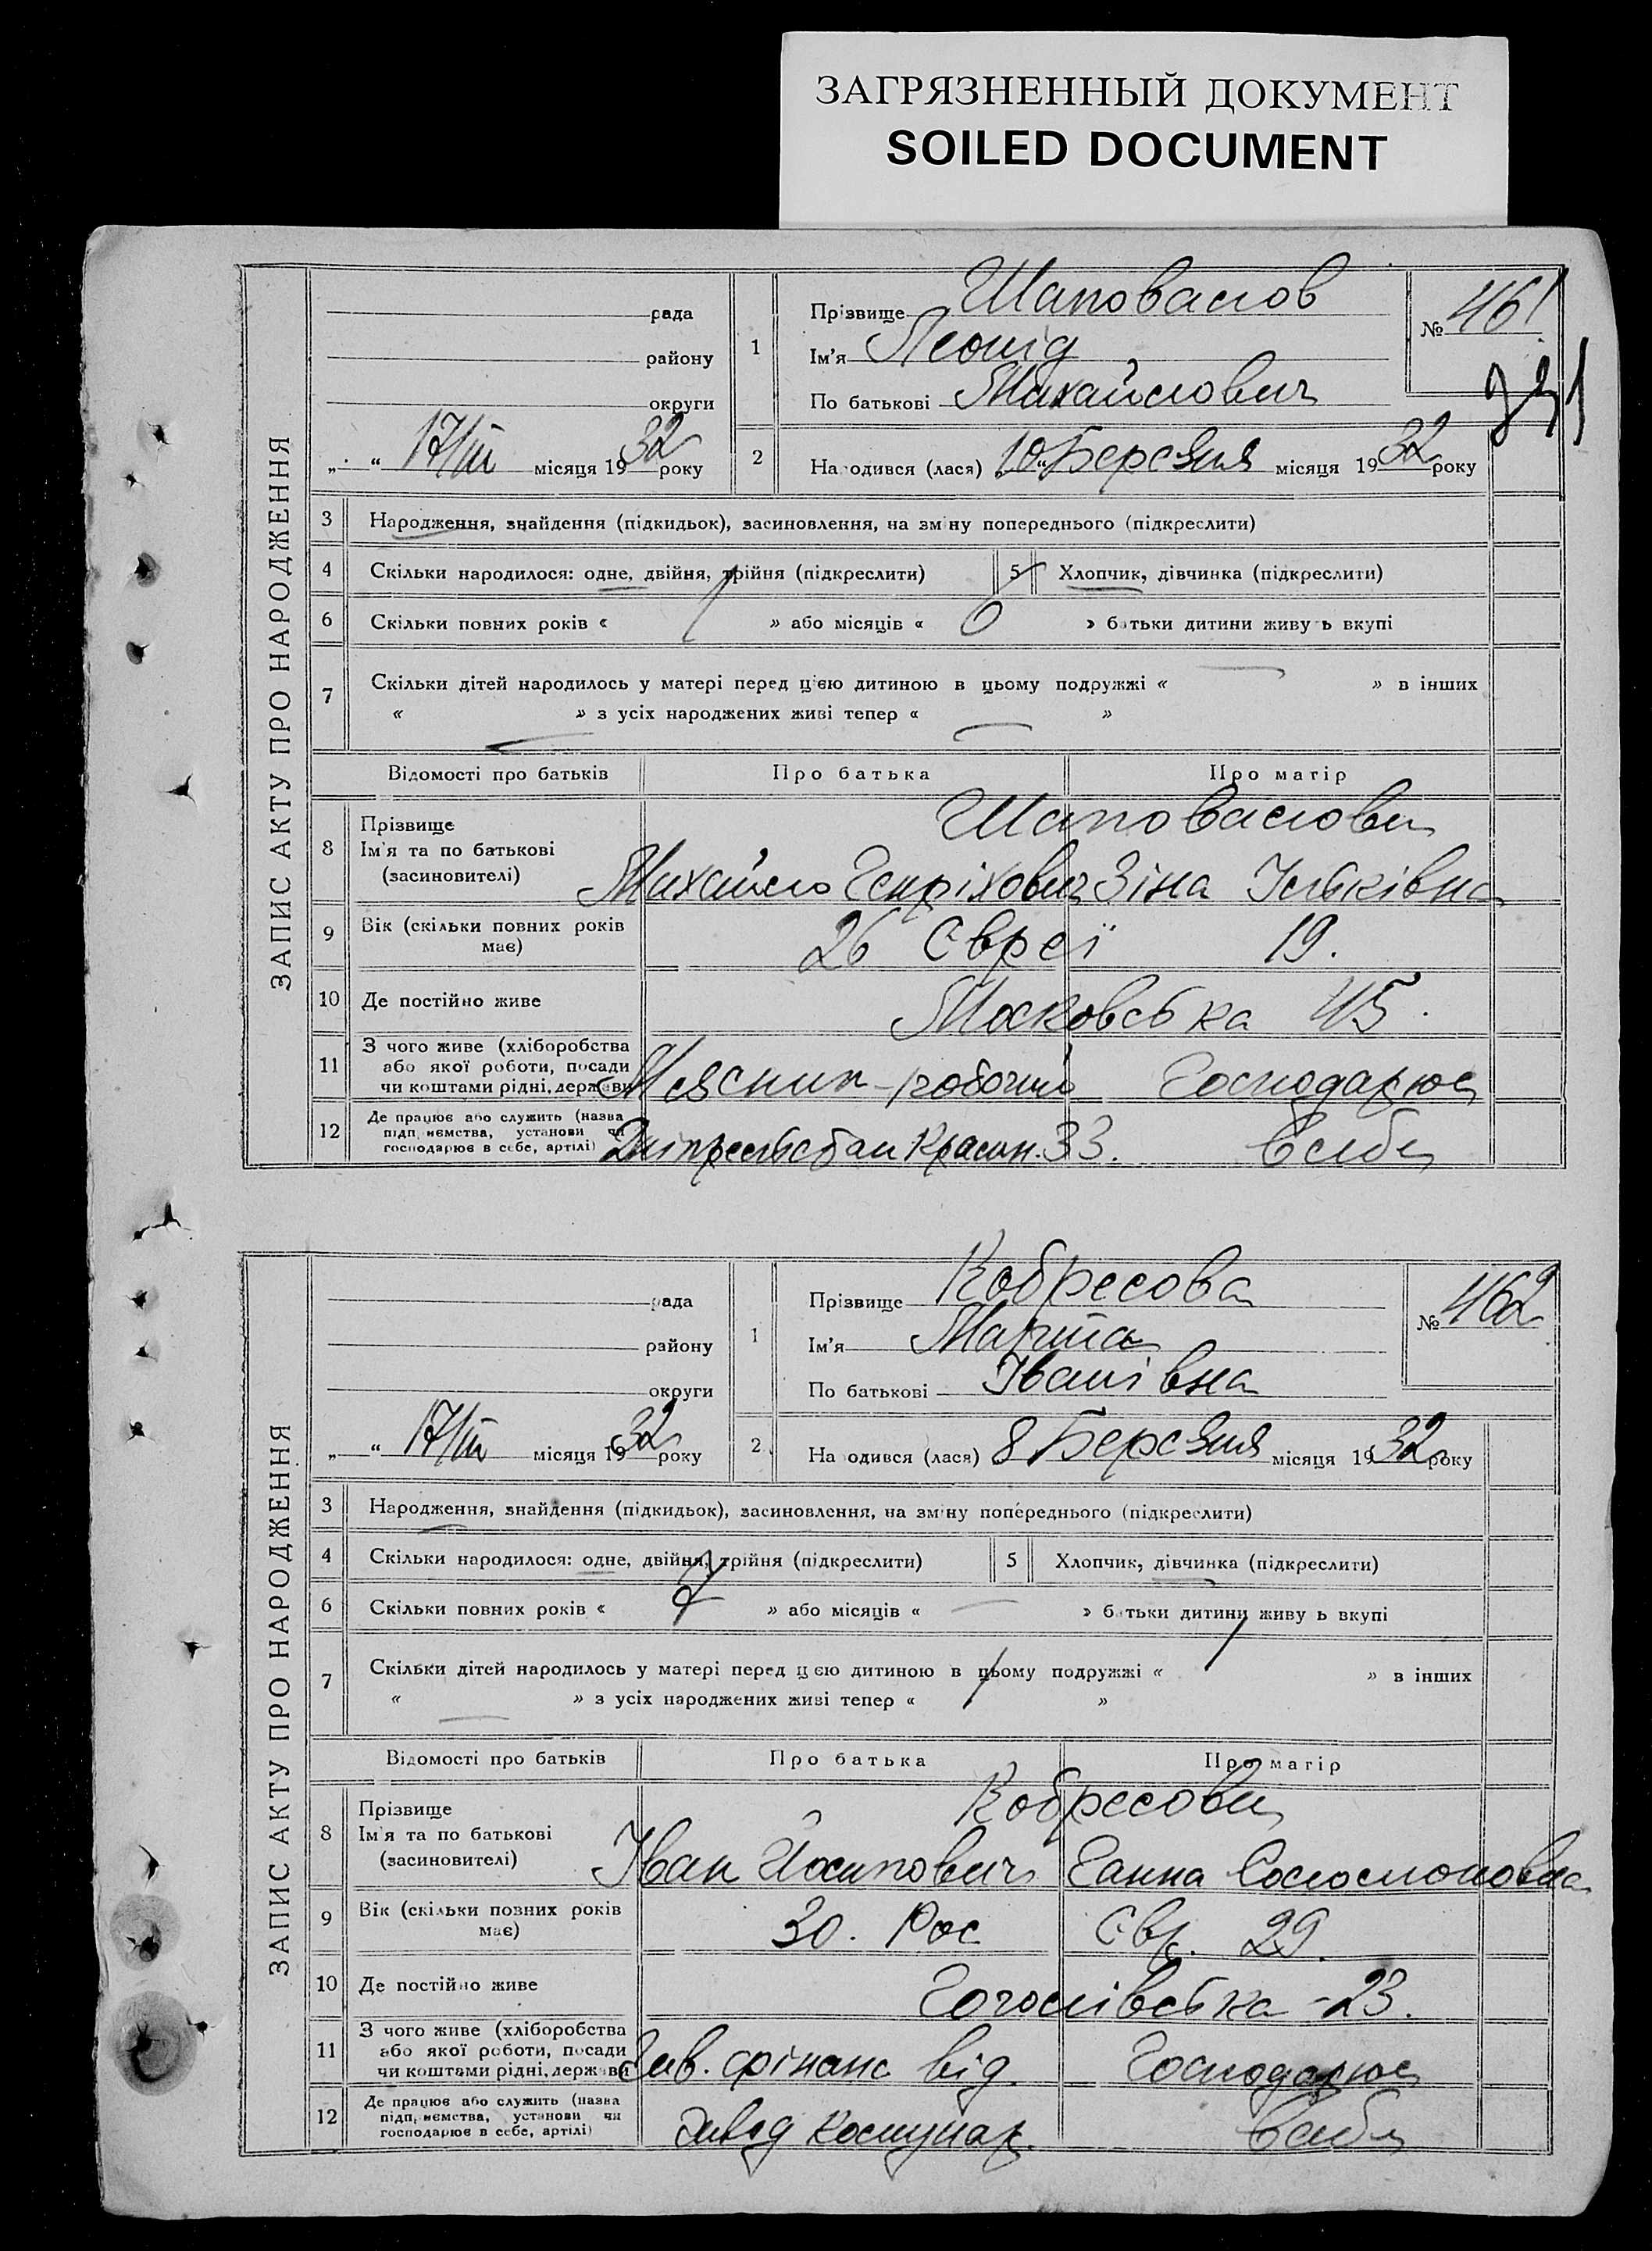 ЗАГРЯЗНЕННЫЙ ДОКУМЕНТ
SOILED DOCUMENT
ЗАПИС АКТУ ПРО НАРОДЖЕННЯ
рада
району
округи
„ “ 17/III місяця 1932 року
1
Прізвище Шаповалов
Ім'я Леонід
По батькові Михайлович
№ 461
2
Народився (лася) „10“ Березня місяця 1932 року
3 Народження, знайдення (підкидьок), засиновлення, на зміну попереднього (підкреслити)
4 Скільки народилося: одне, двійня, трійня (підкреслити) 5 Хлопчик, дівчинка (підкреслити)
6 Скільки повних років « 1 » або місяців « 0 » батьки дитини живуть вкупі
7 Скільки дітей народилось у матері перед цією дитиною в цьому подружжі « — » в інших
« — » з усіх народжених живі тепер « — »
Відомості про батьків Про батька Про матір
8 Прізвище
Ім'я та по батькові
(засиновителі)
Шаповалови
Михайло Генріхович Зіна Ільківна
9 Вік (скільки повних років
має)
26 Євреї 19.
10 Де постійно живе Московська 45.
11 З чого живе (хліборобства
або якої роботи, посади
чи коштами рідні, держави
Мясник-робочий Господарює
12 Де працює або служить (назва
підприємства, установи чи
господарює в себе, артілі)
33. в себе
ЗАПИС АКТУ ПРО НАРОДЖЕННЯ
рада
району
округи
„ “ 17/III місяця 1932 року
1
Прізвище Кобресова
Ім'я Марта
По батькові Іванівна
№ 462
2
Народився (лася) 8 Березня місяця 1932 року
3 Народження, знайдення (підкидьок), засиновлення, на зміну попереднього (підкреслити)
4 Скільки народилося: одне, двійня, трійня (підкреслити) 5 Хлопчик, дівчинка (підкреслити)
6 Скільки повних років « » або місяців « — » батьки дитини живуть вкупі
7 Скільки дітей народилось у матері перед цією дитиною в цьому подружжі « 1 » в інших
« — » з усіх народжених живі тепер « 1 »
Відомості про батьків Про батька Про матір
8 Прізвище
Ім'я та по батькові
(засиновителі)
Кобресови
Іван Йосипович Ганна Соломоновна
9 Вік (скільки повних років
має)
30. Рос Євр. 29.
10 Де постійно живе Гоголівська - 23.
11 З чого живе (хліборобства
або якої роботи, посади
чи коштами рідні, держави
Зав. фінанс від Господарює
12 Де працює або служить (назва
підприємства, установи чи
господарює в себе, артілі)
завод Комунар. в себе